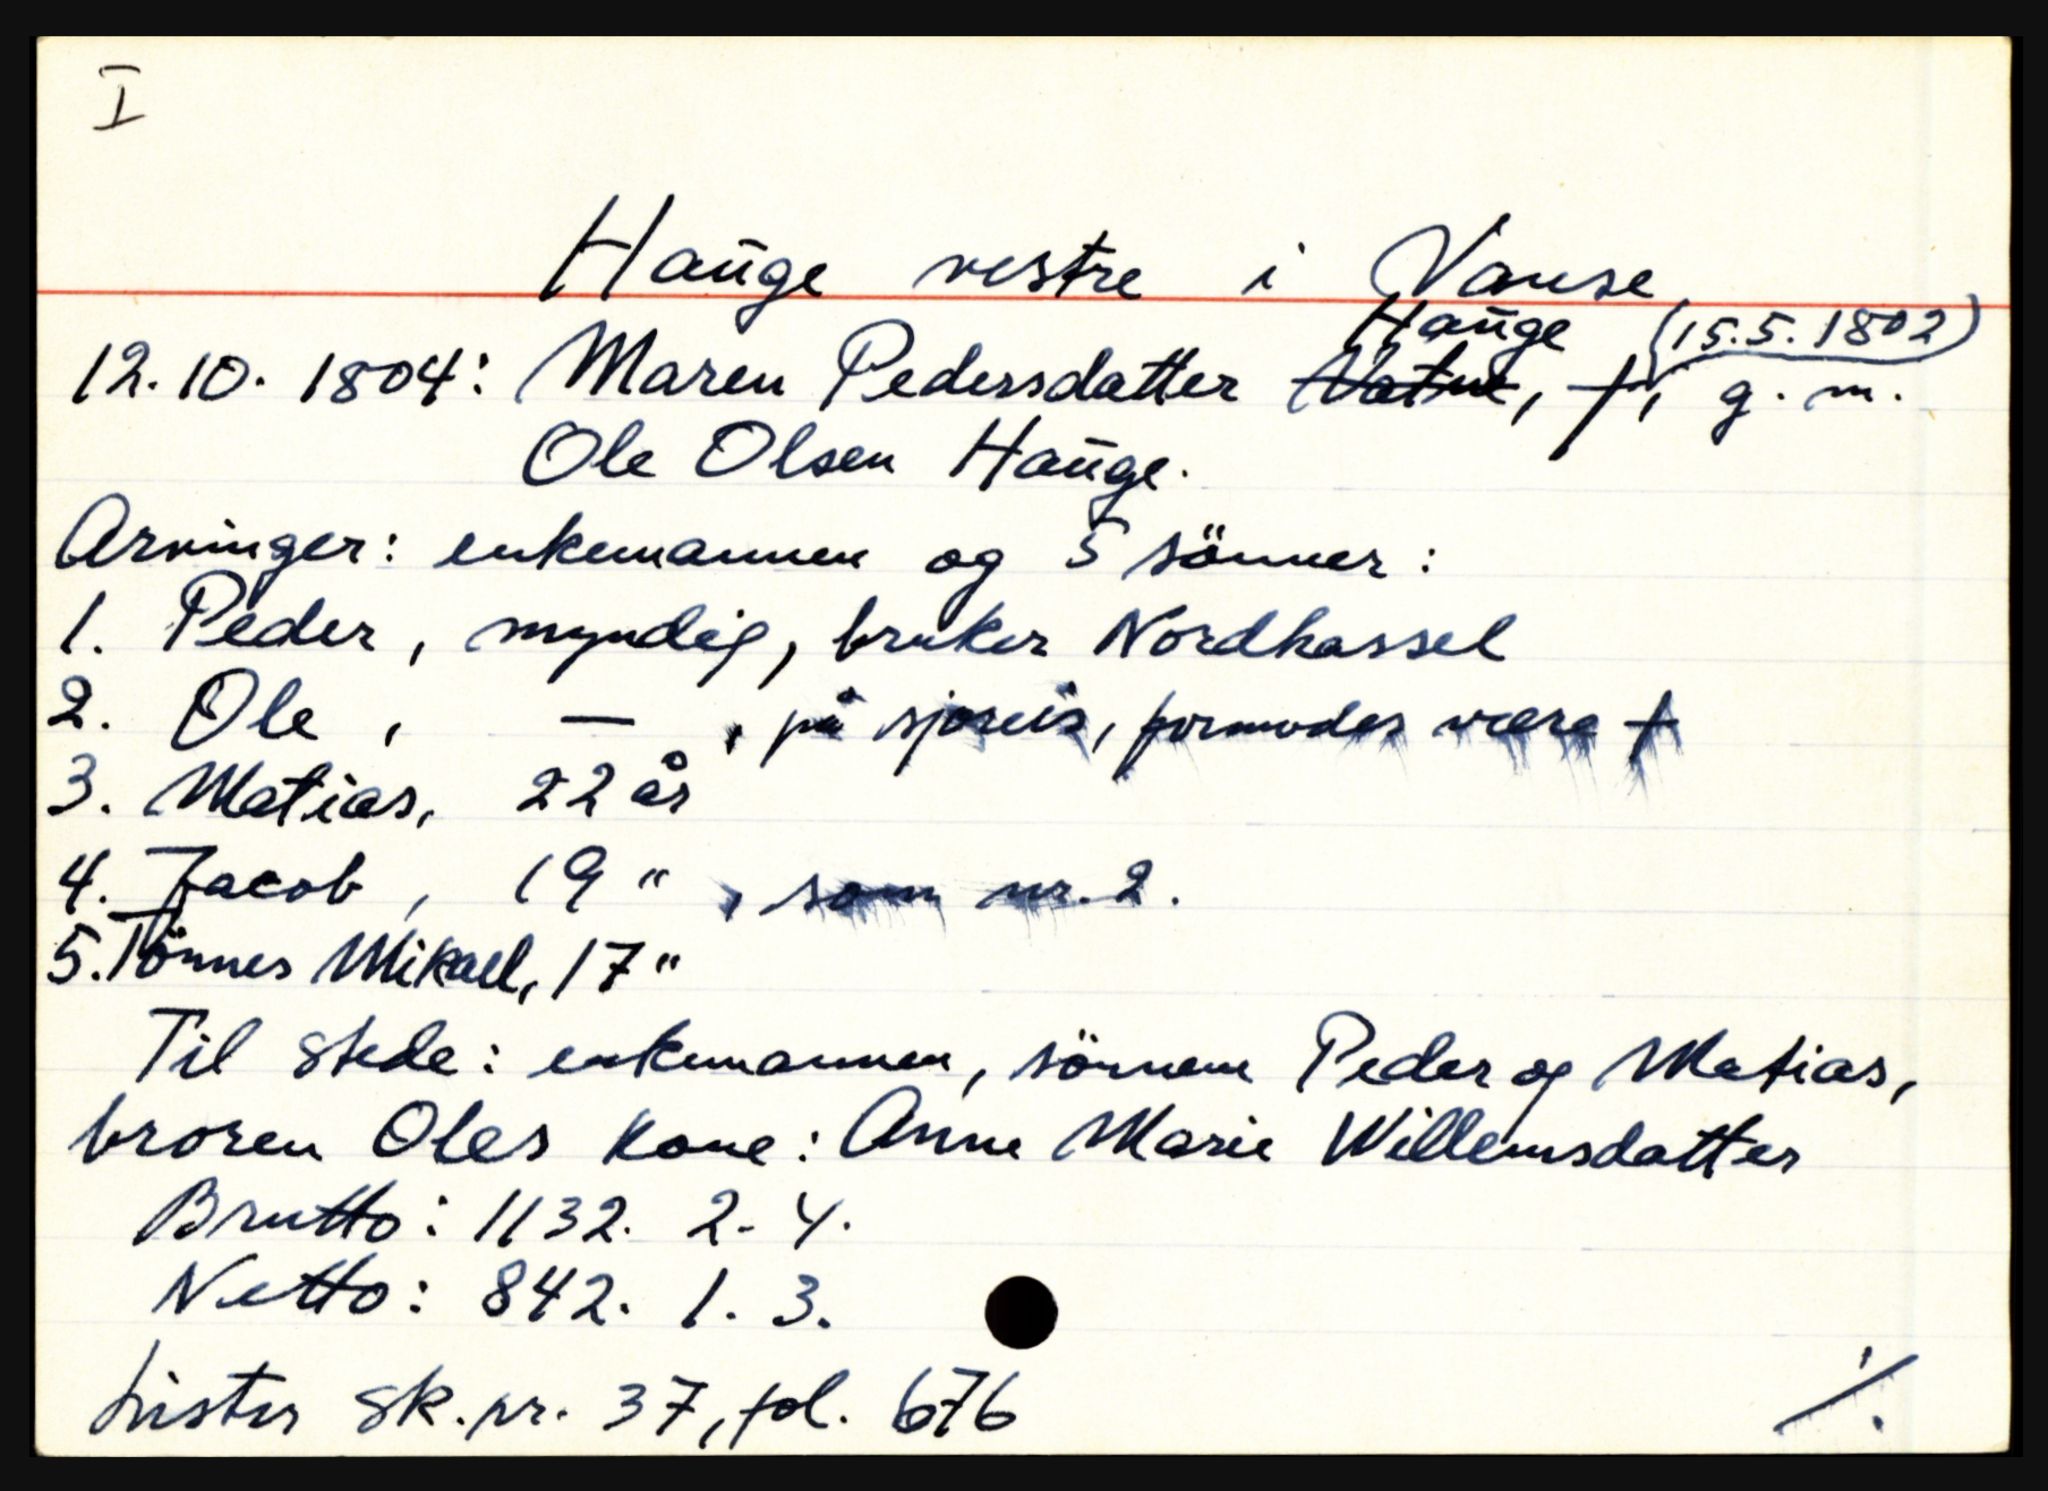 I
Haūge vestre i Vanse
Haūge (15.5.1802)
12.10.1804: Maren Pedersdatter Vatne, †, g. m.
Ole Olsen Haūge.
Arvinger: enkemannen og 5 sönner:
1. Peder, myndig, bruker Nordhassel
2. Ole, — , på sjøreis, formodes være †
3. Matias, 22 år
4. Jacob, 19 " , som nr. 2.
5. Tönnes Mikael, 17 "
Til stede: enkemannen, sönnene Peder og Matias,
broren Oles kone: Anne Marie Willemsdatter
Brutto: 1132. 2. 4.
Netto: 842. 1. 3.
Lister sk.pr. 37, fol. 676